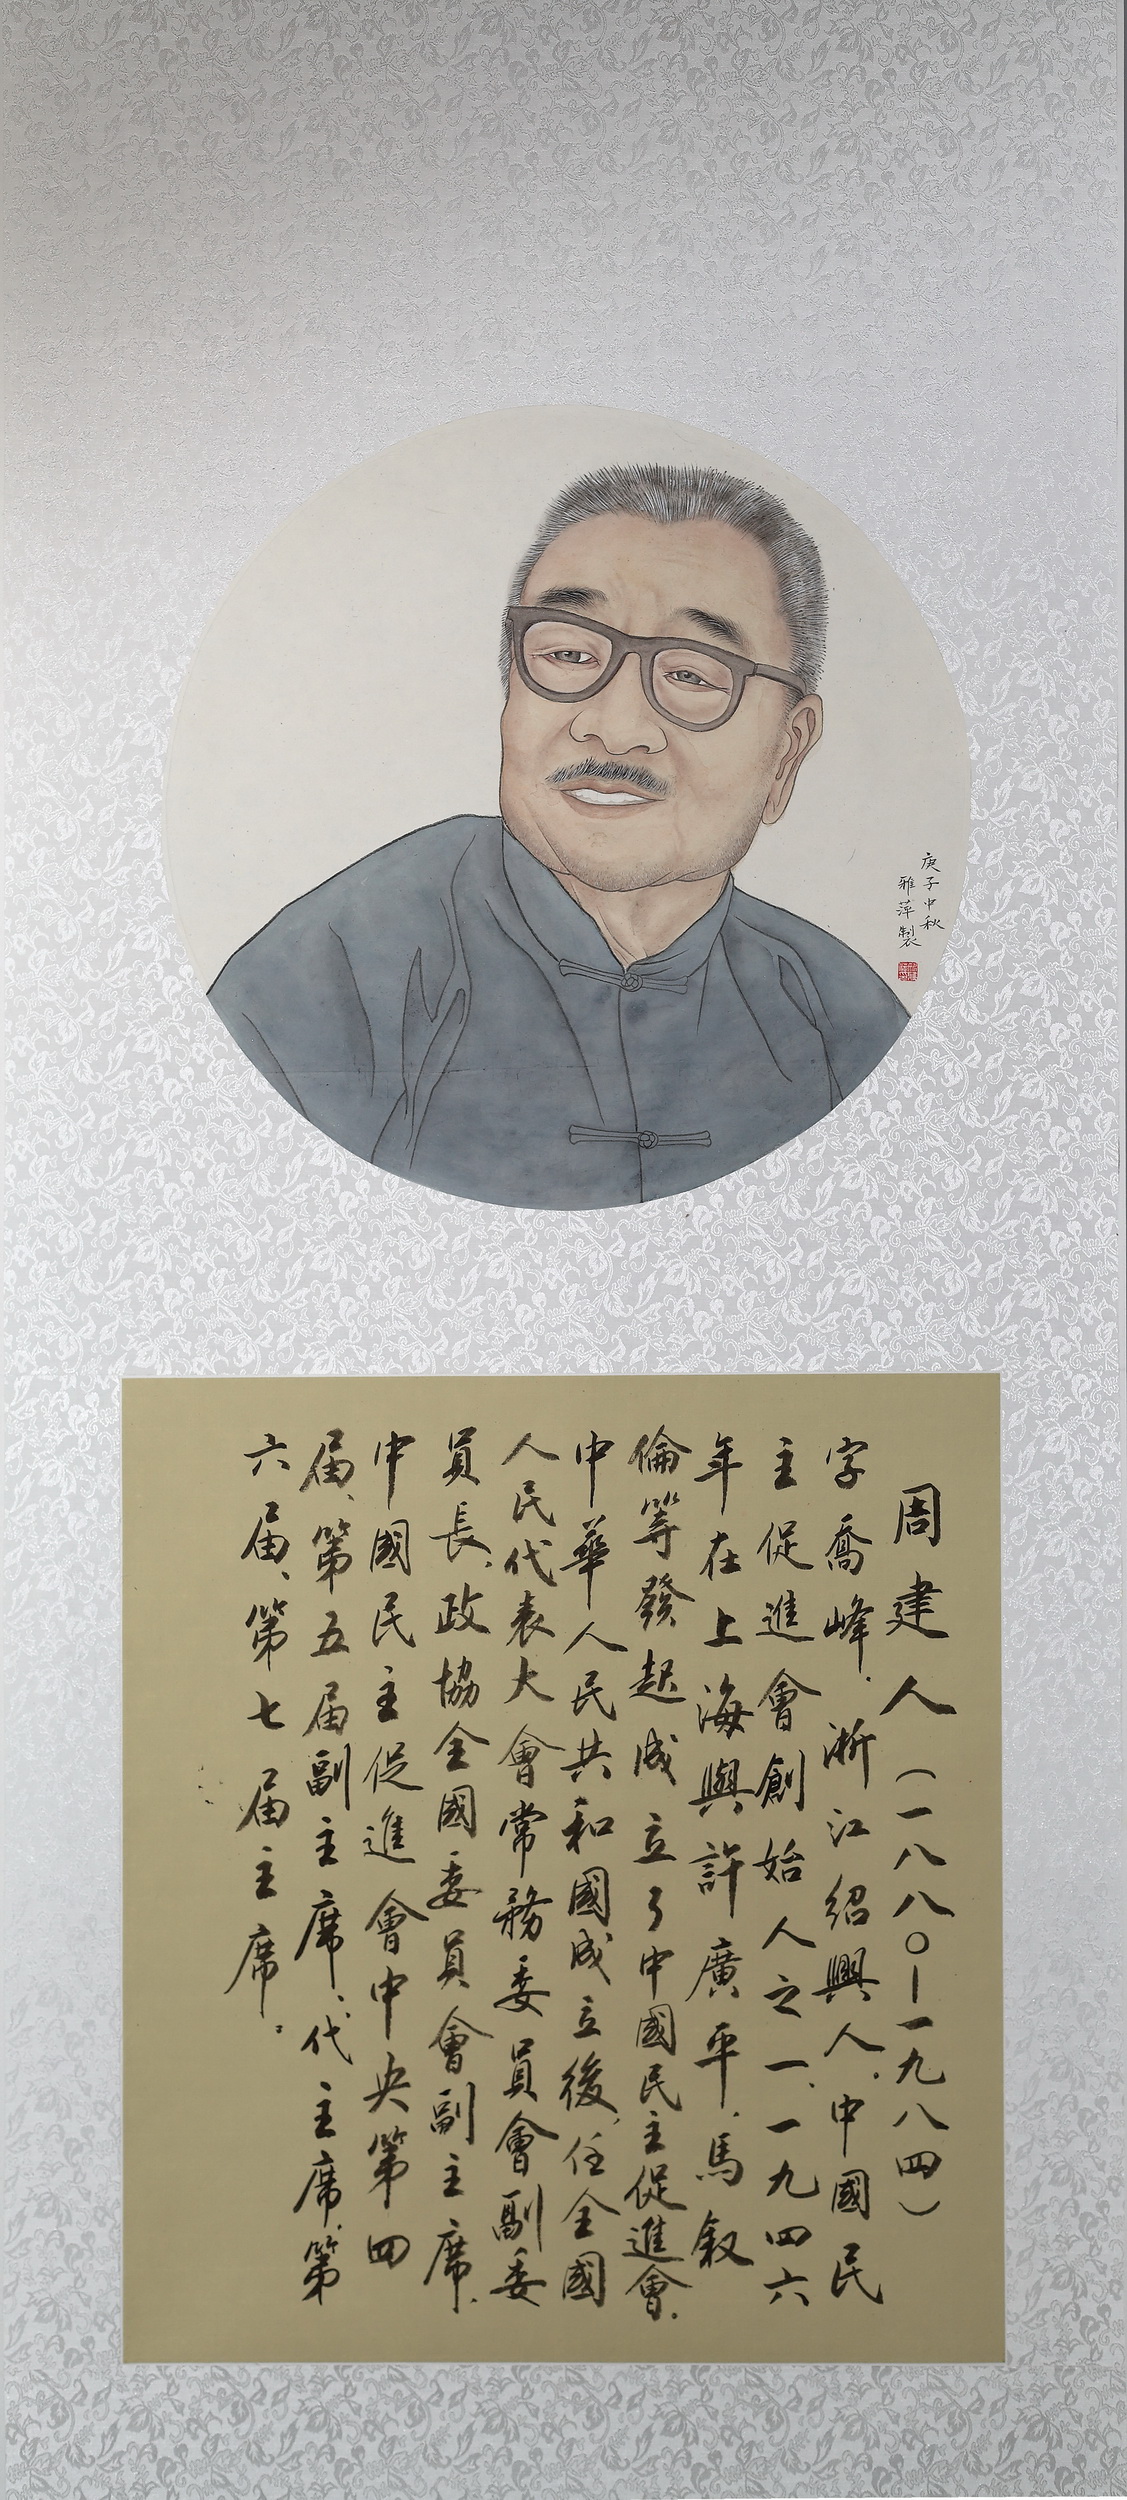 庚子中秋
雅萍製
周建人（一八八〇—一九八四）
字喬峰．浙江紹興人．中國民
主促進會創始人之一．一九四六
年在上海與許廣平．馬叙
倫等發起成立了中國民主促進會．
中華人民共和國成立後，任全國
人民代表大會常務委員會副委
員長、政協全國委員會副主席．
中國民主促進會中央第四
届、第五届副主席、代主席、第
六届、第七届主席．